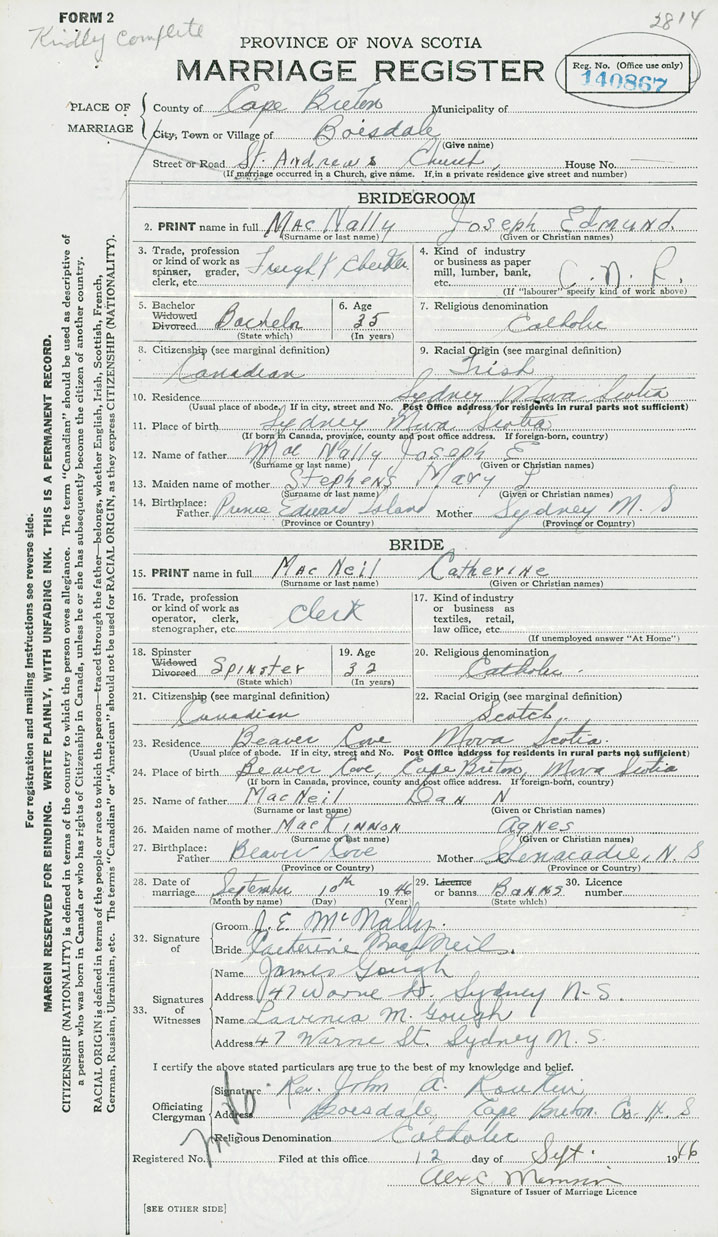 FORM 2
2814
Kindly Complete
PROVINCE OF NOVA SCOTIA
MARRIAGE REGISTER
Reg. No. (Office use only)
140867
PLACE OF MARRIAGE
County of Cape Breton Municipality of
City, Town or Village of Boisdale
(Give name)
Street or Road St. Andrews Church, House No.
(If marriage occurred in a Church, give name. If in a private residence give street and number)
BRIDEGROOM
2. PRINT name in full MacNally Joseph Edmund.
(Surname or last name) (Given or Christian names)
3. Trade, profession or kind of work as spinner, grader, clerk, etc. Freight Checker
4. Kind of industry or business as paper mill, lumber, bank, etc. C. N. R.
(If "labourer" specify kind of work above)
5. Bachelor Widowed Divorced Bachelor
(State which)
6. Age 35
(In years)
7. Religious denomination
Catholic
8. Citizenship (see marginal definition)
Canadian
9. Racial Origin (see marginal definition)
Irish
10. Residence Sydney Nova Scotia
(Usual place of abode. If in city, street and No. Post Office address for residents in rural parts not sufficient)
11. Place of birth Sydney Nova Scotia
(If born in Canada, province, county and post office address. If foreign-born, country)
12. Name of father Mac Nally Joseph E
(Surname or last name) (Given or Christian names)
13. Maiden name of mother Stephens Mary
(Surname or last name) (Given or Christian names)
14. Birthplace: Father Prince Edward Island Mother Sydney N. S
(Province or Country) (Province or Country)
BRIDE
15. PRINT name in full MacNeil Catherine
(Surname or last name) (Given or Christian names)
16. Trade, profession or kind of work as operator, clerk, stenographer, etc. Clerk
17. Kind of industry or business as textiles, retail, law office, etc.
(If unemployed answer "At Home")
18. Spinster Widowed Divorced Spinster
(State which)
19. Age 32
(In years)
20. Religious denomination
Catholic.
21. Citizenship (see marginal definition)
Canadian
22. Racial Origin (see marginal definition)
Scotch.
23. Residence Beaver Cove Nova Scotia.
(Usual place of abode. If in city, street and No. Post Office address for residents in rural parts not sufficient)
24. Place of birth Beaver Cove, Cape Breton, Nova Scotia
(If born in Canada, province, county and post office address. If foreign-born, country)
25. Name of father MacNeil Dan N
(Surname or last name) (Given or Christian names)
26. Maiden name of mother MacKinnon Agnes
(Surname or last name) (Given or Christian names)
27. Birthplace: Father Beaver Cove Mother Benacadie, N. S
(Province or Country) (Province or Country)
28. Date of marriage September 10th 1946
(Month by name) (Day) (Year)
29. Licence or banns Banns
(State which)
30. Licence number
32. Signature of
Groom J. E. McNally.
Bride Catherine MacNeil.
33. Signatures of Witnesses
Name James Gough
Address 47 Warne St. Sydney N-S.
Name Lavinia M. Gough
Address 47 Warne St. Sydney N. S.
I certify the above stated particulars are true to the best of my knowledge and belief.
Officiating Clergyman
Signature Rev. John A. Rankin
Address Boisdale, Cape Breton Co. N. S
Religious Denomination Catholic
Registered No. Filed at this office 12 day of Sept. 1946
Signature of Issuer of Marriage Licence
[SEE OTHER SIDE]
For registration and mailing instructions see reverse side.
MARGIN RESERVED FOR BINDING. WRITE PLAINLY, WITH UNFADING INK. THIS IS A PERMANENT RECORD.
CITIZENSHIP (NATIONALITY) is defined in terms of the country to which the person owes allegiance. The term "Canadian" should be used as descriptive of
a person who was born in Canada or who has rights of Citizenship in Canada, unless he or she has subsequently become the citizen of another country.
RACIAL ORIGIN is defined in terms of the people or race to which the person—traced through the father—belongs, whether English, Irish, Scottish, French,
German, Russian, Ukrainian, etc. The terms "Canadian" or "American" should not be used for RACIAL ORIGIN, as they express CITIZENSHIP (NATIONALITY).